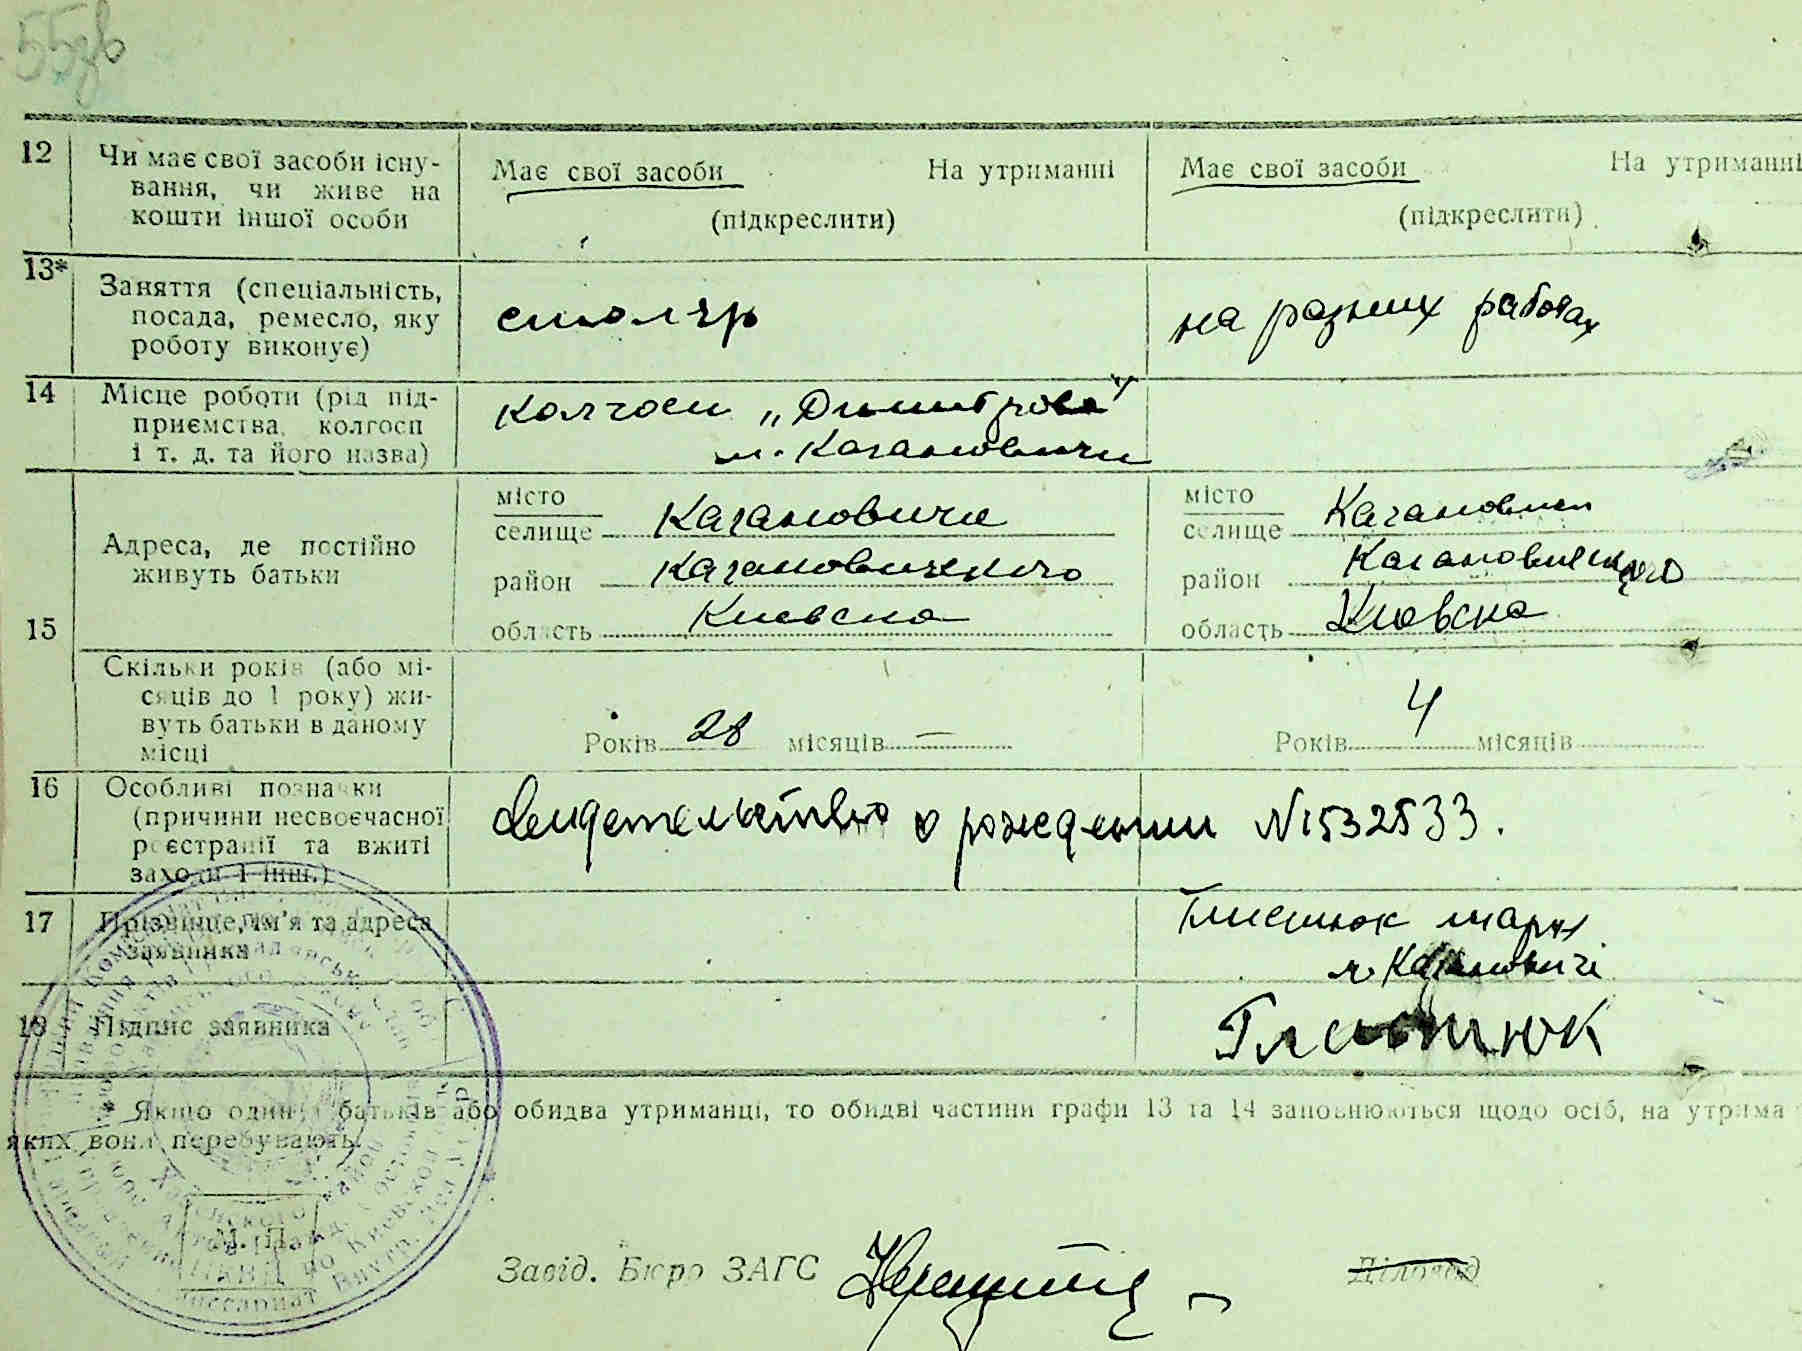 12
Чи має свої засоби існу-
вання, чи живе на
кошти іншої особи
Має свої засоби На утриманні
(підкреслити)
Має свої засоби На утриманні
(підкреслити)
13*
Заняття (спеціальність,
посада, ремесло, яку
роботу виконує)
столяр
на разних работах
14
Місце роботи (рід під-
приємства, колгосп
і т. д. та його назва)
колгосп „Димитрова"
м. Кагановичи
15
Адреса, де постійно
живуть батьки
місто
селище Кагановичи
район Кагановического
область Киевска
місто
селище Кагановичи
район Кагановического
область Киевска
Скільки років (або мі-
сяців до 1 року) жи-
вуть батьки в даному
місці
Років 28 місяців —
Років 4 місяців
16
Особливі позначки
(причини несвоєчасної
реєстрації та вжиті
заходи і інш.)
Свидетельство о рождении №1532533.
17
Прізвище, ім'я та адреса
заявника
м. Кагановичі
18
Підпис заявника
* Якщо один з батьків або обидва утриманці, то обидві частини графи 13 та 14 заповнюються щодо осіб, на утрима
яких вони перебувають.
М. П.
Завід. Бюро ЗАГС
Діловод